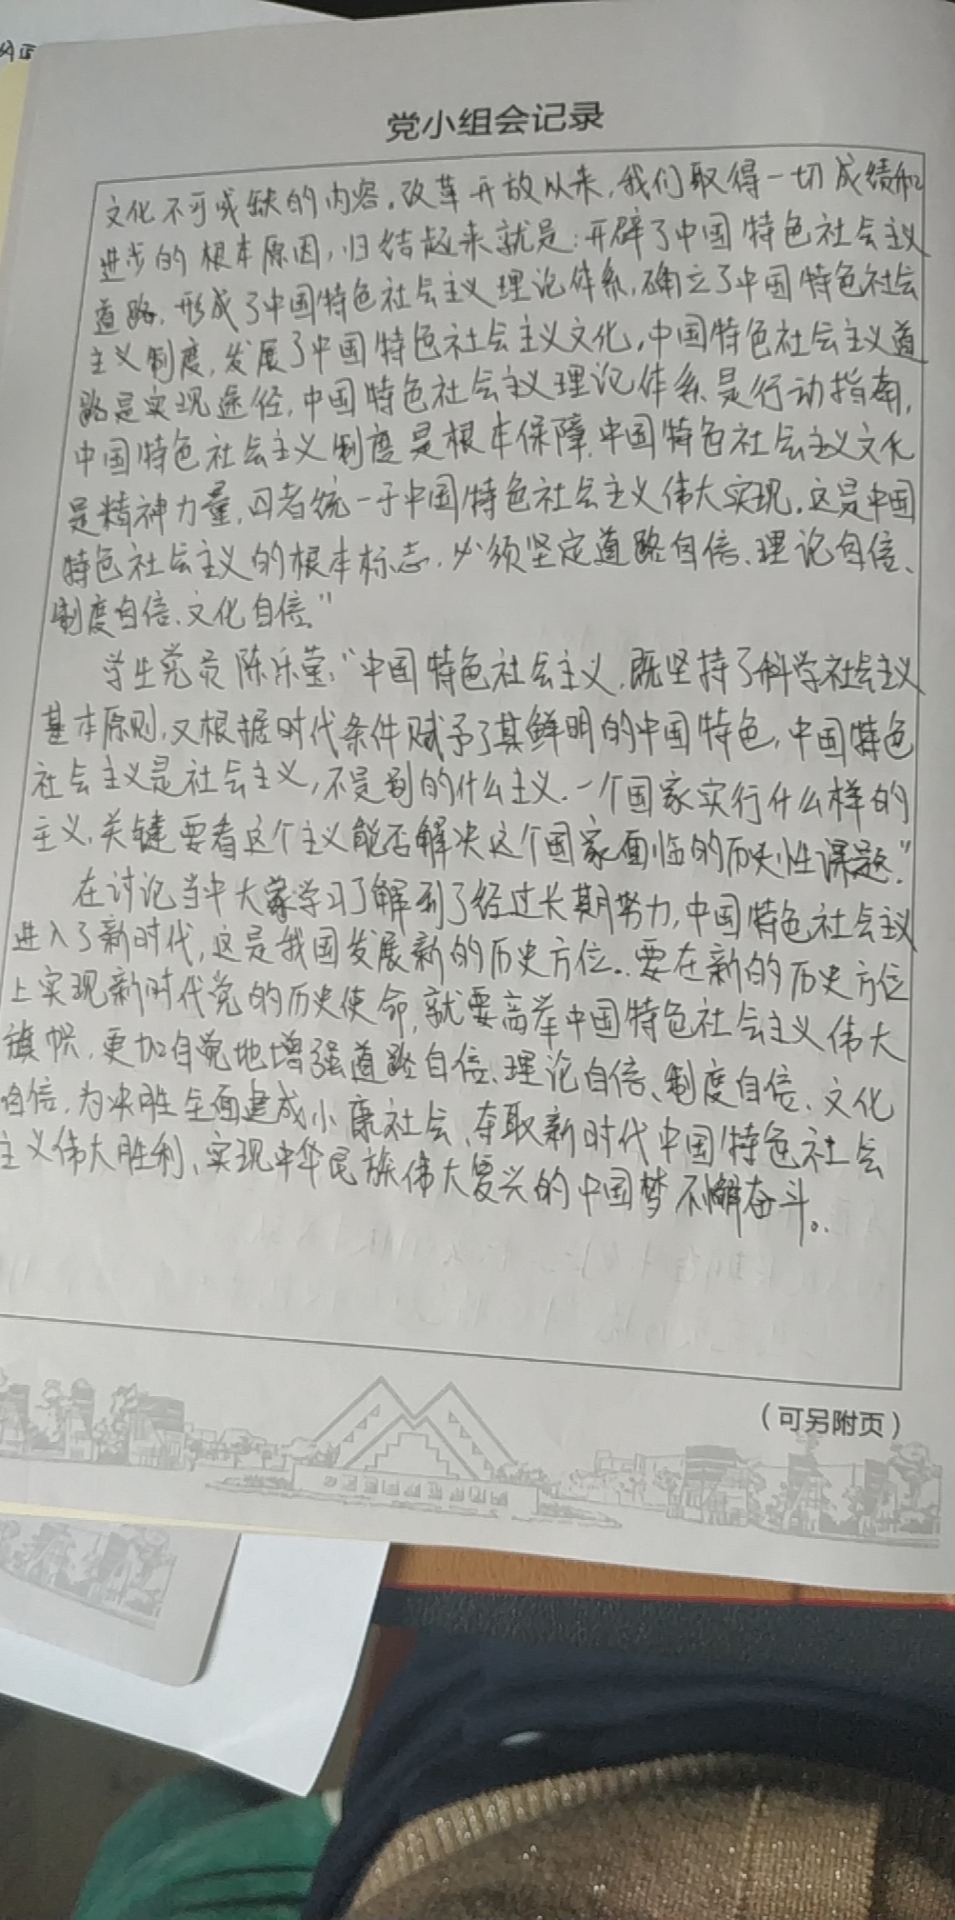 党小组会记录
文化不可或缺的内容。改革开放以来,我们取得一切成绩和
进步的根本原因,归结起来就是:开辟了中国特色社会主义
道路,形成了中国特色社会主义理论体系,确立了中国特色社会
主义制度,发展了中国特色社会主义文化,中国特色社会主义道
路是实现途径,中国特色社会主义理论体系是行动指南,
中国特色社会主义制度是根本保障,中国特色社会主义文化
是精神力量,四者统一于中国特色社会主义伟大实现。这是中国
特色社会主义的根本标志。必须坚定道路自信、理论自信、
制度自信、文化自信。"
学生党员陈乐莹:"中国特色社会主义,既坚持了科学社会主义
基本原则,又根据时代条件赋予了其鲜明的中国特色,中国特色
社会主义是社会主义,不是别的什么主义。一个国家实行什么样的
主义,关键要看这个主义能否解决这个国家面临的历史性课题。"
在讨论当中大家学习了解到了经过长期努力,中国特色社会主义
进入了新时代,这是我国发展新的历史方位。要在新的历史方位
上实现新时代党的历史使命,就要高举中国特色社会主义伟大
旗帜,更加自觉地增强道路自信、理论自信、制度自信、文化
自信,为决胜全面建成小康社会、夺取新时代中国特色社会
主义伟大胜利、实现中华民族伟大复兴的中国梦不懈奋斗。
(可另附页)